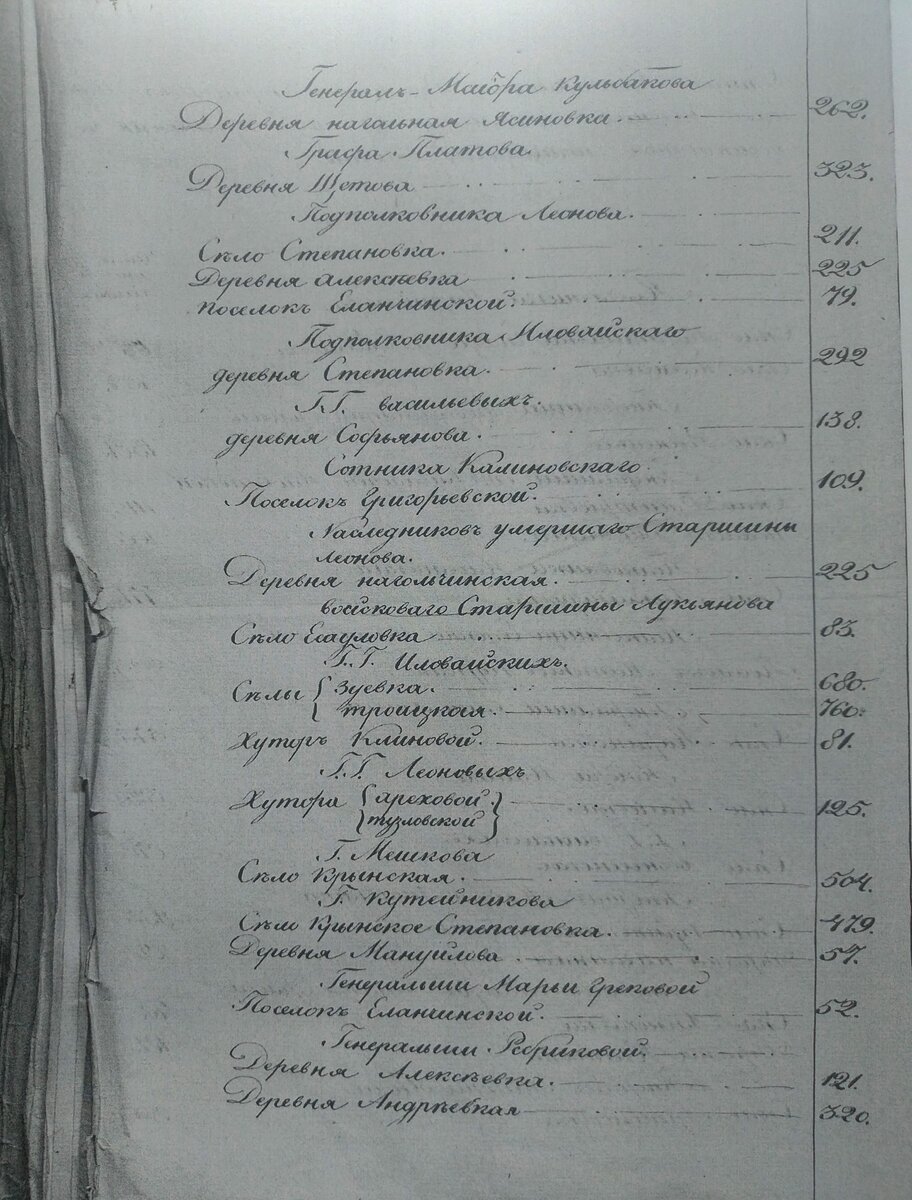 Генералъ-Маіора Кульбакова
Деревня нагальная Ясиновка. 262.
Графа Платова.
Деревня Щетова 323.
Подполковника Леонова.
Сѣло Степановка. 211.
Деревня Алексѣевка 225
поселокъ Еланчинской. 79.
Подполковника Иловайскаго
деревня Степановка. 292
Г.Г. васильевыхъ.
деревня Софьянова. 138.
Сотника Калиновскаго.
Поселокъ Григорьевской. 109.
Наследниковъ умершаго Старшины
Леонова.
Деревня нагольчинская. 225
войсковаго Старшины Лукьянова
Сѣло Есауловка 83.
Г.Г. Иловайскихъ.
Сѣлы { Зуевка. 680.
троицкая. 760.
Хуторъ Клиновой. 81.
Г.Г. Леоновыхъ
Хутора { ареховой. } 125.
тузловской
Г. Мешкова
Сѣло Крынская. 504.
Г. Кутейникова
Сѣло Крынское Степановка. 479.
Деревня Мануйлова 57.
Генеральши Марьи Грековой
Поселокъ Еланчинской. 52.
Генеральши Ребриковой.
Деревня Алексѣевка. 121.
Деревня Андрѣевкая 320.